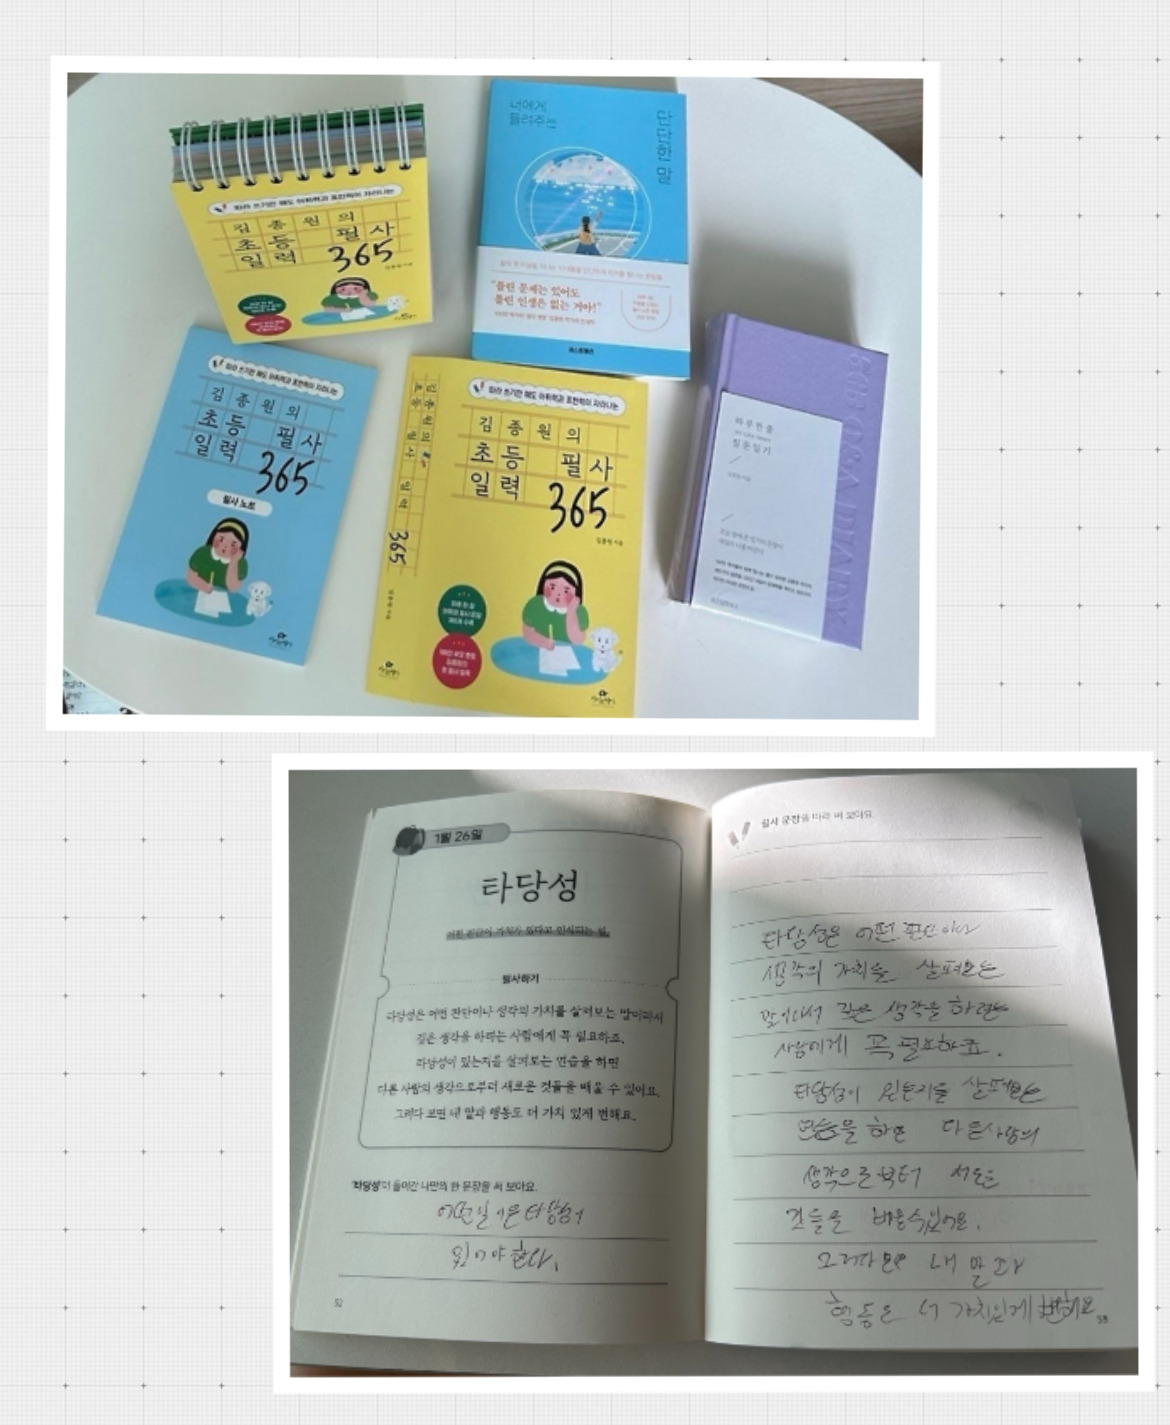 따라 쓰기만 해도 어휘력과 표현력이 자라나는
김종원의
초등 필사
일력 365
너에게
들려주는
단단한 말
"틀린 문제는 있어도
틀린 인생은 없는 거야!"
따라 쓰기만 해도 어휘력과 표현력이 자라나는
김종원의
초등 필사
일력 365
필사 노트
김종원의 초등 필사 일력 365
따라 쓰기만 해도 어휘력과 표현력이 자라나는
김종원의
초등 필사
일력 365
김종원 지음
하루 한 줄
질문 일기
1월 26일
타당성
어떤 판단이 가치가 있다고 인식되는 일.
필사하기
타당성은 어떤 판단이나 생각의 가치를 살펴보는 말이라서
깊은 생각을 하려는 사람에게 꼭 필요하죠.
타당성이 있는지를 살펴보는 연습을 하면
다른 사람의 생각으로부터 새로운 것들을 배울 수 있어요.
그러다 보면 내 말과 행동도 더 가치 있게 변해요.
'타당성'이 들어간 나만의 한 문장을 써 보아요.
있어야 한다.
52
필사 문장을 따라 써 보아요.
타당성은 어떤 판단이나
생각의 가치를 살펴보는
말이라서 깊은 생각을 하려는
사람에게 꼭 필요하죠.
타당성이 있는지를 살펴보는
연습을 하면 다른사람의
생각으로부터
것들을 배울수있어요.
그러다 보면 내 말과
행동은 더 가치있게 변해요
53